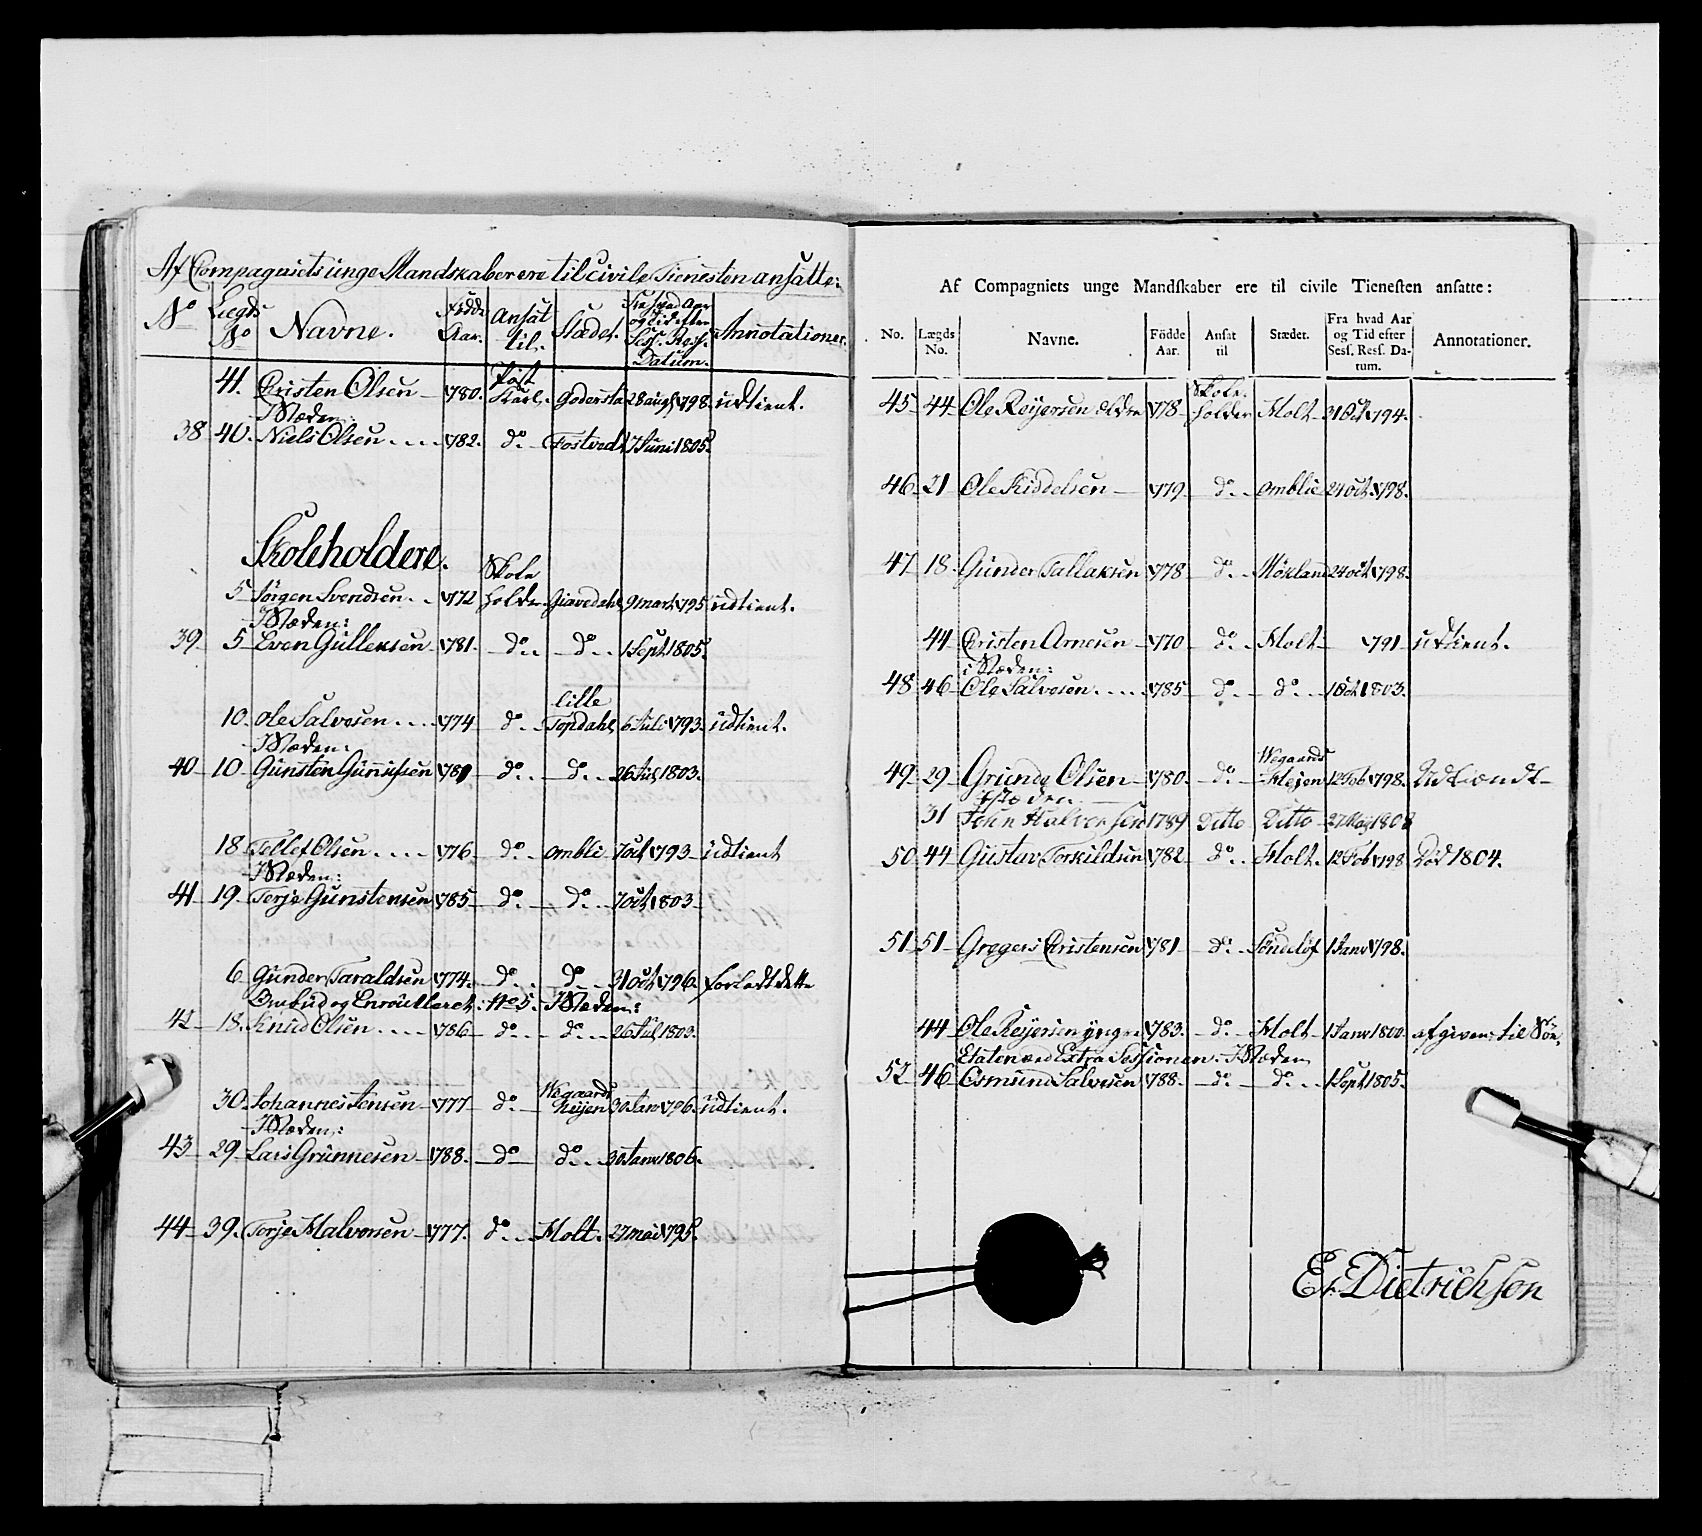 Af Compagniets unge Mandskaber ere til civile Tienesten ansatte:
No Lægds No Navne. Fødde Aar. Ansat til. Stædet. Fra hvad Aar og Tid efter Sess. Ress. Datum. Annotationer.
41. Christen Olsen 1780. Post Karl. Godersta 28 aug 1798. udtient.
I Stæden:
38 40. Niels Olsen 1782. do Fostvedt 7 Juni 1805.
Skoleholdere.
5 Jörgen Svendsen 1772 Skole holder Giavedahl 9 mart 1795 udtient.
I Stæden:
39 5 Even Gullensen 1781. do do 1 Sept 1805.
10. Ole Salvesen 1774 do lille Topdahl 6 Juli 1793. udtient.
I Stæden:
40 10 Gunsten Gunufsen 1781 do do 26 Jul 1803.
18 Tellef Olsen 1776 do ombli 7 oct 1793 udtient
I Stæden:
41 19. Terje Gunstensen 1785 do do 7 oct 1803
6 Gunder Taraldsen 1774. do do 31 oct 1796. forladt dette
Ombud og Enroulleret No 5. I Stæden:
42 18. Knud Olsen 1786 do do 26 Jul 1803.
30. Johannes Jensen 1777 do Wegaards heyen 30 Janv 1796. udtient.
I Stæden:
43 29 Lars Grunnesen 1788. do do 30 Janv 1806.
44 39. Terje Halvorsen 1777. do Holt. 27 mai 1795.
Af Compagniets unge Mandskaber ere til civile Tienesten ansatte:
No. Lægds No. Navne. Födde Aar. Ansat til Stædet. Fra hvad Aar og Tid efter Sess. Ress. Datum. Annotationer.
45 44 Ole Reyersen ældre 1778 Skole holder Holt 31 Oct 1794.
46 21 Ole Kiddelsen 1779 do Omblie 24 oct 1798.
47 18 Gunder Tallaksen 1778 do Möxland 24 oct 1798.
44 Christen Arnesen 1770 do Holt 1791 udtient.
i Stæden:
48 46 Ole Salvesen 1785 do do 1 Oct 1803.
49 29 Grunde Olsen 1780. do Wegaards Heyen 12 Feb 1798. Udtændt
I Stæden
31 John Halversen 1789 Ditto Ditto 27 May 1808
50 44 Gustav Torkildsen 1782 do Holt 12 Feb 1798 Död 1804.
51 51 Gregers Christensen 1781 do Söndelöf 1 Janv 1798.
44 Ole Reyersen yngre 1783. do Holt 1 Janv 1800. afgiven til Söe
Etaten ved Extra Sessionen. I Stæden
52 46 Osmund Salvesen 1788. do do 1 Sept 1805.
E. Dietrichson